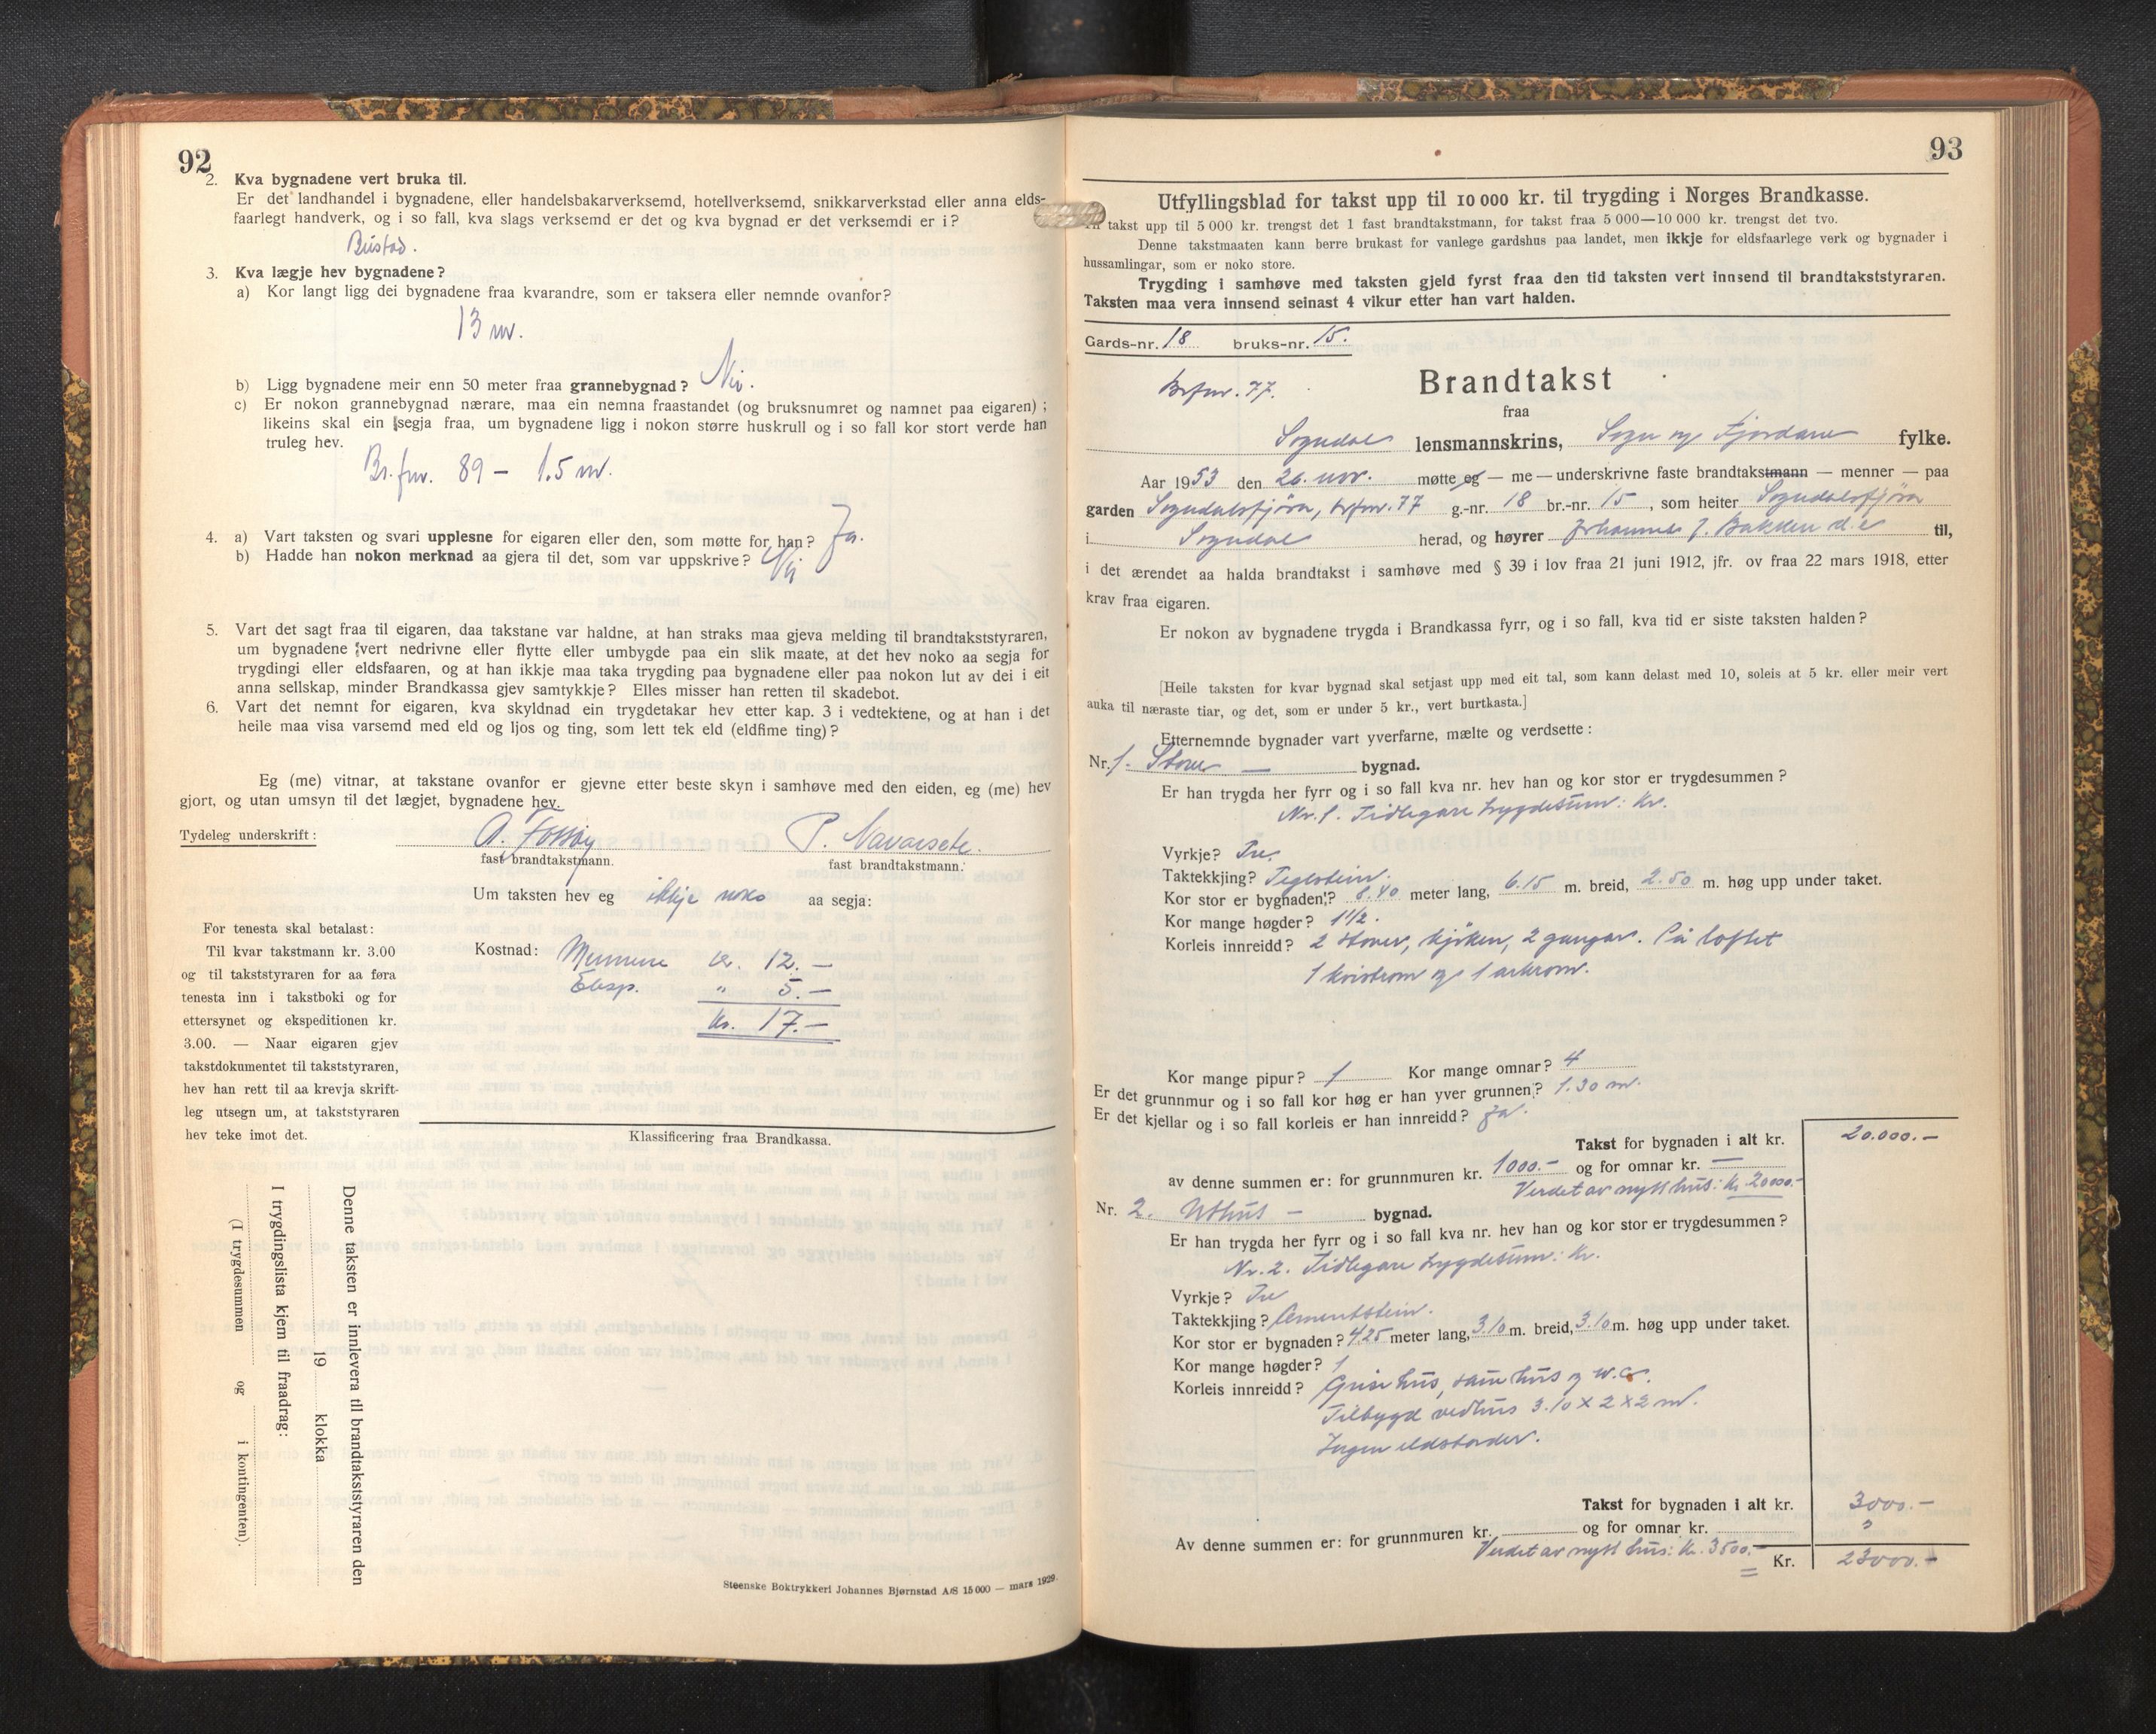 92
2. Kva bygnadene vert bruka til.
Er det landhandel i bygnadene, eller handelsbakarverksemd, hotellverksemd, snikkarverkstad eller anna elds-
faarlegt handverk, og i so fall, kva slags verksemd er det og kva bygnad er det verksemdi er i?
Bustad.
3. Kva lægje hev bygnadene?
a) Kor langt ligg dei bygnadene fraa kvarandre, som er taksera eller nemnde ovanfor?
13 m.
b) Ligg bygnadene meir enn 50 meter fraa grannebygnad? Nei.
c) Er nokon grannebygnad nærare, maa ein nemna fraastandet (og bruksnumret og namnet paa eigaren);
likeins skal ein segja fraa, um bygnadene ligg i nokon større huskrull og i so fall kor stort verde han
truleg hev.
Br.fnr. 89 – 1.5 m.
4. a) Vart taksten og svari upplesne for eigaren eller den, som møtte for han? Ja.
b) Hadde han nokon merknad aa gjera til det, som var uppskrive? Nei
5. Vart det sagt fraa til eigaren, daa takstane var haldne, at han straks maa gjeva melding til brandtakststyraren,
um bygnadene vert nedrivne eller flytte eller umbygde paa ein slik maate, at det hev noko aa segja for
trygdingi eller eldsfaaren, og at han ikkje maa taka trygding paa bygnadene eller paa nokon lut av dei i eit
anna sellskap, minder Brandkassa gjev samtykkje? Elles misser han retten til skadebot.
6. Vart det nemnt for eigaren, kva skyldnad ein trygdetakar hev etter kap. 3 i vedtektene, og at han i det
heile maa visa varsemd med eld og ljos og ting, som lett tek eld (eldfime ting)?
Eg (me) vitnar, at takstane ovanfor er gjevne etter beste skyn i samhøve med den eiden, eg (me) hev
gjort, og utan umsyn til det lægjet, bygnadene hev.
Tydeleg underskrift: A. Fossøy P. Navarsete.
fast brandtakstmann. fast brandtakstmann.
Um taksten hev eg ikkje noko aa segja:
For tenesta skal betalast:
Til kvar takstmann kr. 3.00
og til takststyraren for aa føra
tenesta inn i takstboki og for
ettersynet og ekspeditionen kr.
3.00. — Naar eigaren gjev
takstdokumentet til takststyraren,
hev han rett til aa krevja skrift-
leg utsegn um, at takststyraren
hev teke imot det.
Kostnad: Mennene kr. 12.–
Eksp. " 5.–
Kr. 17.–
Klassificering fraa Brandkassa.
Denne taksten er innlevera til brandtakststyraren den
19 klokka
I trygdingslista kjem til fraadrag:
(I trygdesummen og i kontingenten).
Steenske Boktrykkeri Johannes Bjørnstad A/S 15 000 — mars 1929.
93
Utfyllingsblad for takst upp til 10 000 kr. til trygding i Norges Brandkasse.
takst upp til 5 000 kr. trengst det 1 fast brandtakstmann, for takst fraa 5 000—10 000 kr. trengst det tvo.
Denne takstmaaten kann berre brukast for vanlege gardshus paa landet, men ikkje for eldsfaarlege verk og bygnader i
hussamlingar, som er noko store.
Trygding i samhøve med taksten gjeld fyrst fraa den tid taksten vert innsend til brandtakststyraren.
Taksten maa vera innsend seinast 4 vikur etter han vart halden.
Gards-nr. 18 bruks-nr. 15.
Br.fnr. 77.
Brandtakst
fraa
Sogndal lensmannskrins, Sogn og Fjordane fylke.
Aar 1953 den 26. nov. møtte eg — me — underskrivne faste brandtakstmann — menner — paa
garden Sogndalsfjøra, br.fnr. 77 g.-nr. 18 br.-nr. 15, som heiter Sogndalsfjøra
i Sogndal herad, og høyrer Johannes J. Bakken d.e til,
i det ærendet aa halda brandtakst i samhøve med § 39 i lov fraa 21 juni 1912, jfr. ov fraa 22 mars 1918, etter
krav fraa eigaren.
Er nokon av bygnadene trygda i Brandkassa fyrr, og i so fall, kva tid er siste taksten halden?
[Heile taksten for kvar bygnad skal setjast upp med eit tal, som kann delast med 10, soleis at 5 kr. eller meir vert
auka til næraste tiar, og det, som er under 5 kr., vert burtkasta.]
Etternemnde bygnader vart yverfarne, mælte og verdsette:
Nr. 1. Stove — bygnad.
Er han trygda her fyrr og i so fall kva nr. hev han og kor stor er trygdesummen?
Nr. 1. Tidlegare trygdesum: Kr.
Vyrkje? Tre.
Taktekkjing? Teglstein.
Kor stor er bygnaden? 8.40 meter lang, 6.15 m. breid, 2.50 m. høg upp under taket.
Kor mange høgder? 1 1/2.
Korleis innreidd? 2 stover, kjøken, 2 gangar. På loftet
1 kvistrom og 1 arkrom.
Kor mange pipur? 1 Kor mange omnar? 4
Er det grunnmur og i so fall kor høg er han yver grunnen? 1.30 m.
Er det kjellar og i so fall korleis er han innreidd? Ja.
Takst for bygnaden i alt kr. 20.000.–
av denne summen er: for grunnmuren kr. 1000.– og for omnar kr. —
Verdet av nytt hus: Kr. 20000.–
Nr. 2. Uthus – bygnad.
Er han trygda her fyrr og i so fall kva nr. hev han og kor stor er trygdesummen?
Nr. 2. Tidlegare trygdesum: Kr.
Vyrkje? Tre
Taktekkjing? Cementstein.
Kor stor er bygnaden? 4.25 meter lang, 3.10 m. breid, 3.10 m. høg upp under taket.
Kor mange høgder? 1
Korleis innreidd? Grisehus, sauehus og w.c.
Tilbygd vedhus 3.10 x 2 x 2 m.
Ingen eldstader.
Takst for bygnaden i alt kr. 3000.–
Av denne summen er: for grunnmuren kr. og for omnar kr.
Verdet av nytt hus: Kr. 3500.–
Kr. 23000.–